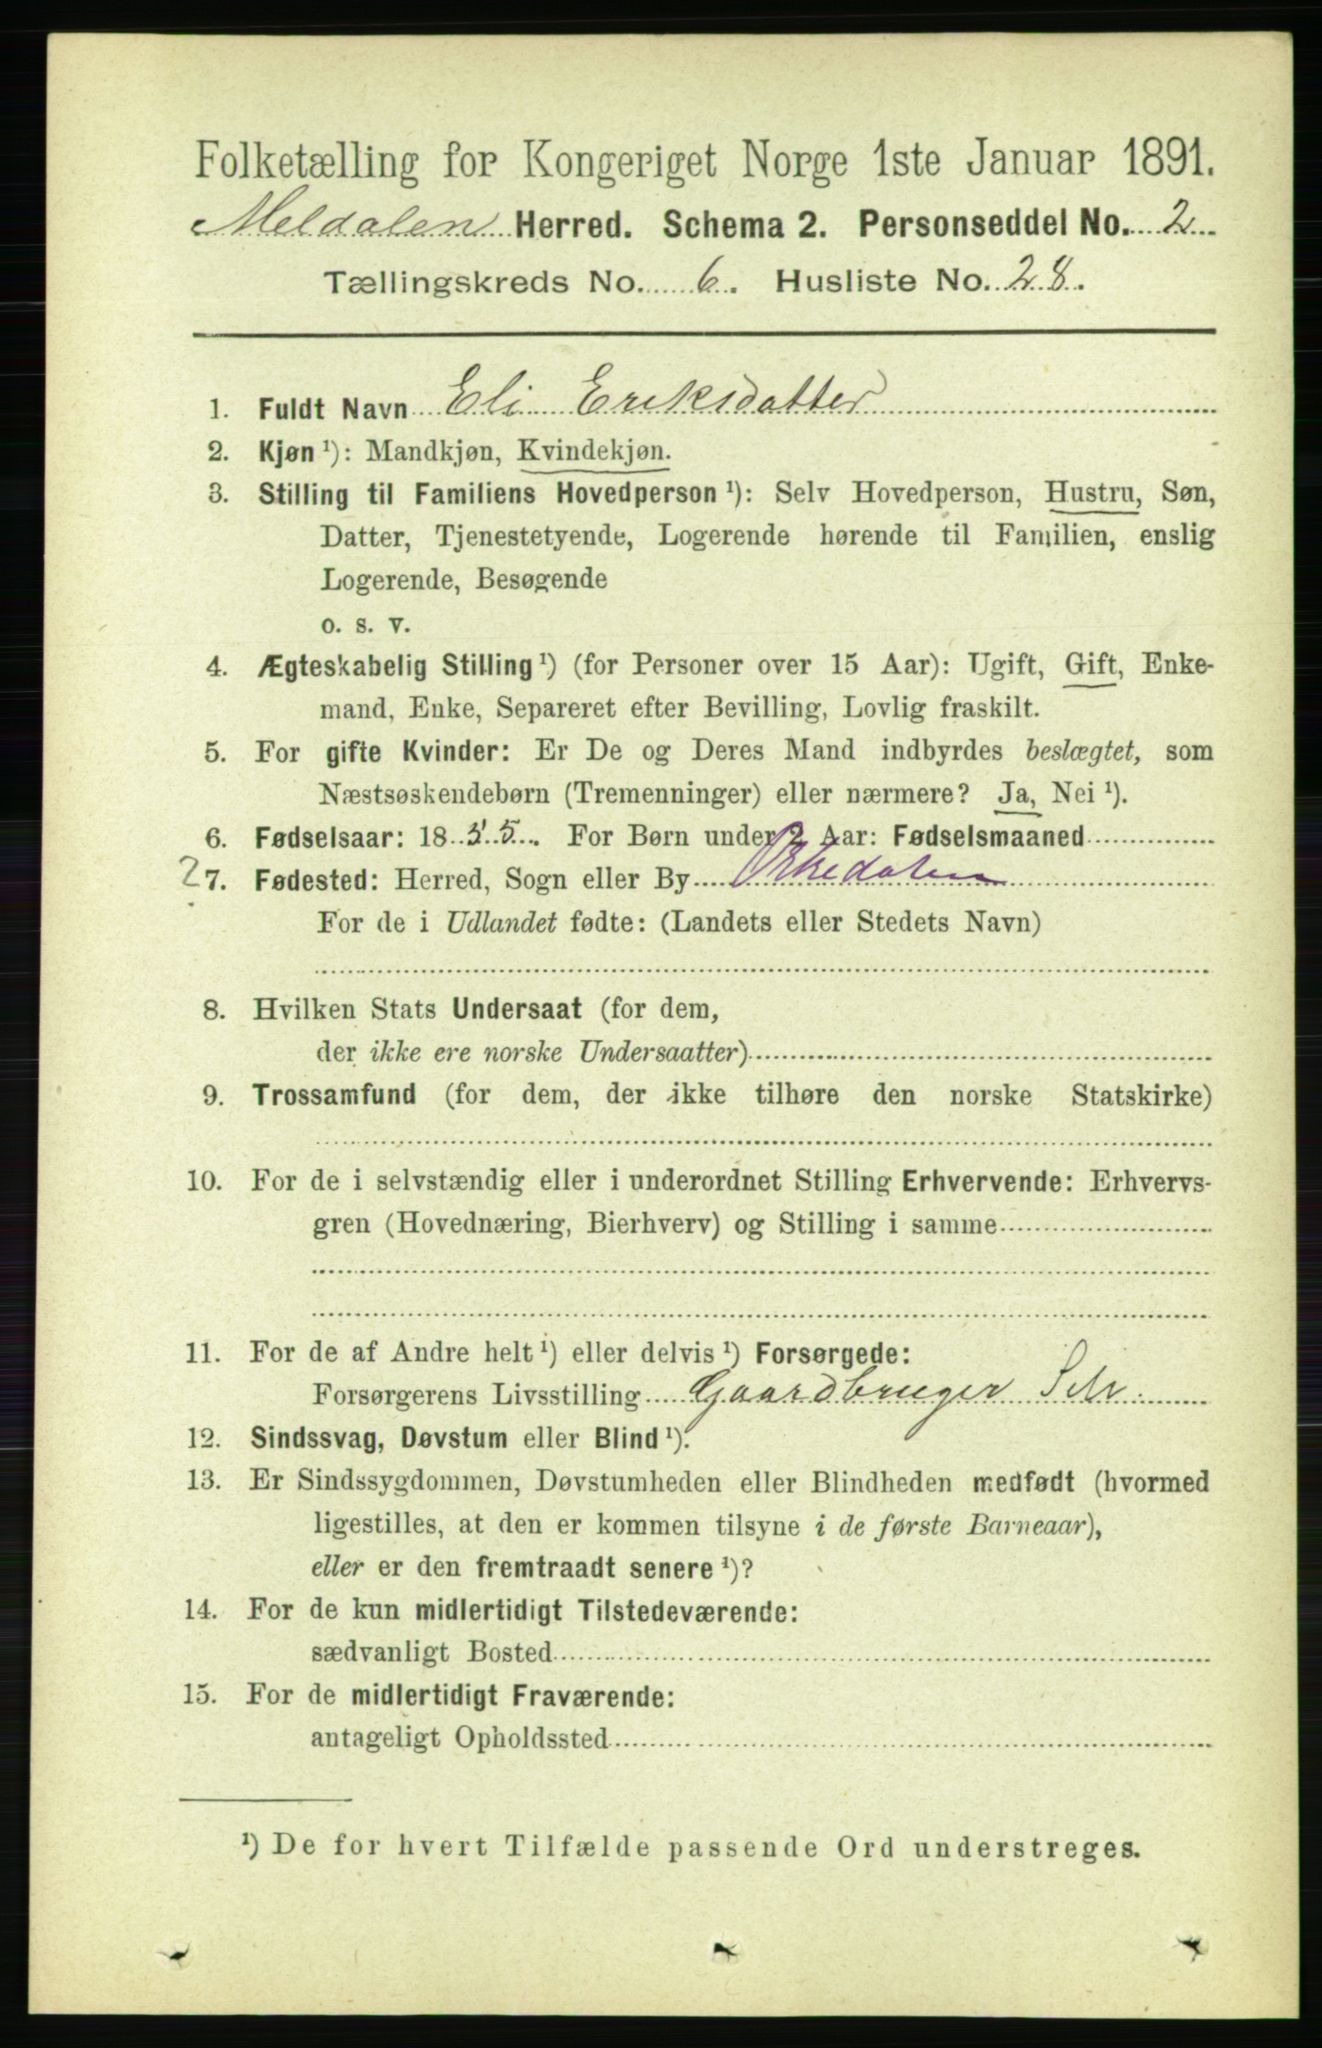 Folketælling for Kongeriget Norge 1ste Januar 1891.
Meldalen Herred. Schema 2. Personseddel No. 2
Tællingskreds No. 6. Husliste No. 28.
1. Fuldt Navn Eli Eriksdatter
2. Kjøn ¹): Mandkjøn, Kvindekjøn.
3. Stilling til Familiens Hovedperson ¹): Selv Hovedperson, Hustru, Søn,
Datter, Tjenestetyende, Logerende hørende til Familien, enslig
Logerende, Besøgende
o. s. v.
4. Ægteskabelig Stilling ¹) (for Personer over 15 Aar): Ugift, Gift, Enke-
mand, Enke, Separeret efter Bevilling, Lovlig fraskilt.
5. For gifte Kvinder: Er De og Deres Mand indbyrdes beslægtet, som
Næstsøskendebørn (Tremenninger) eller nærmere? Ja, Nei ¹).
6. Fødselsaar: 18 For Børn under 2 Aar: Fødselsmaaned
7. Fødested: Herred, Sogn eller By Orkedalen
For de i Udlandet fødte: (Landets eller Stedets Navn)
8. Hvilken Stats Undersaat (for dem,
der ikke ere norske Undersaatter)
9. Trossamfund (for dem, der ikke tilhøre den norske Statskirke)
10. For de i selvstændig eller i underordnet Stilling Erhvervende: Erhvervs-
gren (Hovednæring, Bierhverv) og Stilling i samme
11. For de af Andre helt ¹) eller delvis ¹) Forsørgede:
Forsørgerens Livsstilling Gaardbruger
12. Sindssvag, Døvstum eller Blind ¹).
13. Er Sindssygdommen, Døvstumheden eller Blindheden medfødt (hvormed
ligestilles, at den er kommen tilsyne i de første Barneaar),
eller er den fremtraadt senere ¹)?
14. For de kun midlertidigt Tilstedeværende:
sædvanligt Bosted
15. For de midlertidigt Fraværende:
antageligt Opholdssted
¹) De for hvert Tilfælde passende Ord understreges.